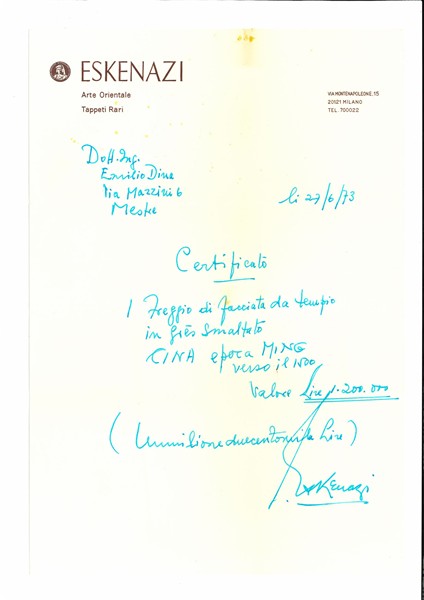 ESKENAZI
Arte Orientale
Tappeti Rari
VIA MONTENAPOLEONE, 15
20121 MILANO
TEL. 700022
Dott. Ing.
Emilio Dina
Via Mazzini 6
Mestre
li 27/6/73
Certificato
1 Freggio di facciata da tempio
in grès smaltato
CINA epoca MING
verso il 1400
Valore Lire 1.200.000
(Unmilioneduecentomila Lire)
Eskenazi